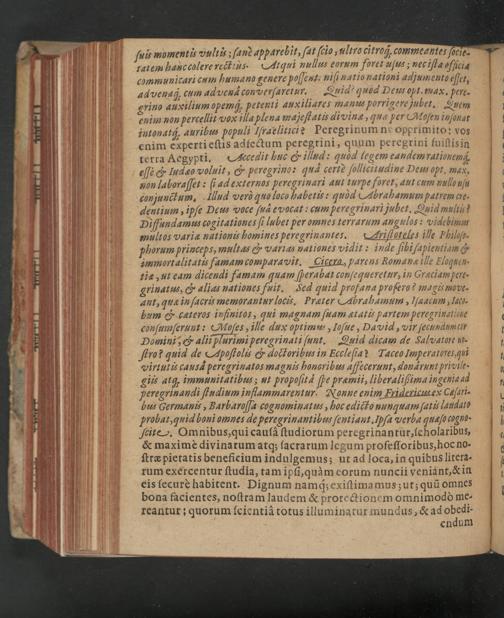 suis momentis vultis; sanè apparebit, sat scio, ultro citroq́, commeantes socie-
tatem hanc colere rectiùs. Atqui nullus eorum foret usus; nec ista officia
communicari cum humano genere possent: nisi natio nationi adjumento esset,
advenaq́, cum advenâ conversaretur. Quid? quòd Deus opt. max. pere-
grino auxilium opemq́, petenti auxiliares manus porrigere jubet. Quem
enim non percellit vox illa plena majestatis divinæ, qua per Mosen insonat
intonatq́, auribus populi Israëlitici? Peregrinum ne opprimito: vos
enim experti estis adfectum peregrini, quum peregrini fuistis in
terra Aegypti. Accedit huc & illud: quòd legem eandem rationemq́,
esse & Iudæo voluit, & peregrino: quâ certè sollicitudine Deus opt. max.
non laborasset: si ad externos peregrinari aut turpe foret, aut cum nullo usu
conjunctum. Illud verò quo loco habetis: quòd Abrahamum patrem cre-
dentium, ipse Deus voce suâ evocat: cum peregrinari jubet. Quid multis?
Diffundamus cogitationes si lubet per omnes terrarum angulos: videbimus
multos variæ nationis homines peregrinantes. Aristoteles ille Philoso-
phorum princeps, multas & varias nationes vidit: inde sibi sapientiam &
immortalitatis famam comparavit. Cicero, parens Romanæ ille Eloquen-
tiæ, ut eam dicendi famam quam sperabat consequeretur, in Græciam pere-
grinatus, & alias nationes fuit. Sed quid profana profero? magis move-
ant, quæ in sacris memorantur locis. Præter Abrahamum, Isaacum, Iaco-
bum & cateros infinitos, qui magnam suam ætatis partem peregrinatione
consumserunt: Moses, ille dux optimus, Iosue, David, vir secundum cor
Domini, & alii plurimi peregrinati sunt. Quid dicam de Salvatore no-
stro? quid de Apostolis & doctoribus in Ecclesia? Taceo Imperatores, qui
virtutis causâ peregrinatos magnis honoribus affecerunt, donârunt privile-
giis atq́, immunitatibus; ut propositâ spe præmii, liberalissima ingenia ad
peregrinandi studium inflammarentur. Nonne enim Fridericus ex Cæsari-
bus Germanis, Barbarossa cognominatus, hoc edicto nunquam satis laudato
probat, quid boni omnes de peregrinantibus sentiant. Ipsa verba quæso cogno-
scite. Omnibus, qui causâ studiorum peregrinantur, scholaribus,
& maximè divinarum atq; sacrarum legum professoribus, hoc no-
stræ pietatis beneficium indulgemus; ut ad loca, in quibus litera-
rum exercentur studia, tam ipsi, quàm eorum nuncii veniant, & in
eis securè habitent. Dignum namq; existimamus; ut; quũ omnes
bona facientes, nostram laudem & protectionem omnimodò me-
reantur; quorum scientiâ totus illuminatur mundus, & ad obedi-
endum